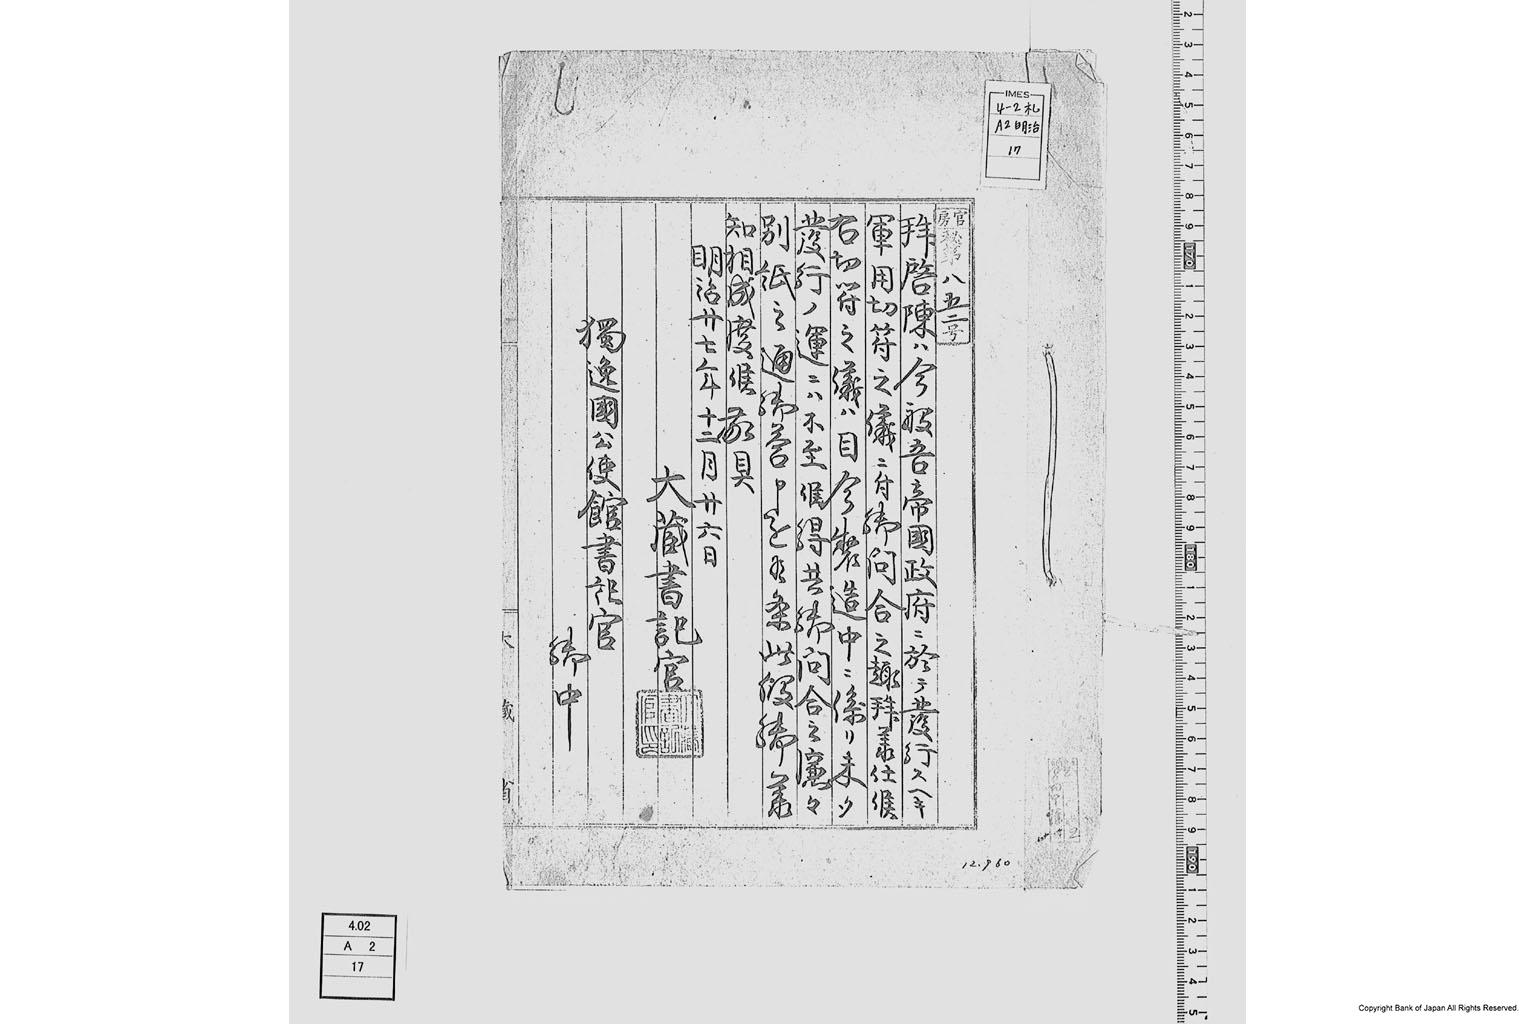 IMES
4-2 札
A2 明治
17
官房
秘第八五二号
拜啓陳ハ今般吾帝國政府ニ於テ發行スヘキ
軍用切符之儀ニ付御問合之趣拜承仕候
右切符之儀ハ目今製造中ニ係リ未タ
發行ノ運ニハ不至候得共御問合之廉々
別紙之通御答申進候条此段御承
知相成度候敬具
明治廿七年十二月廿六日
大藏書記官
獨逸國公使館書記官
御中
大藏省
12.960
4.02
A 2
17
Copyright Bank of Japan All Rights Reserved.